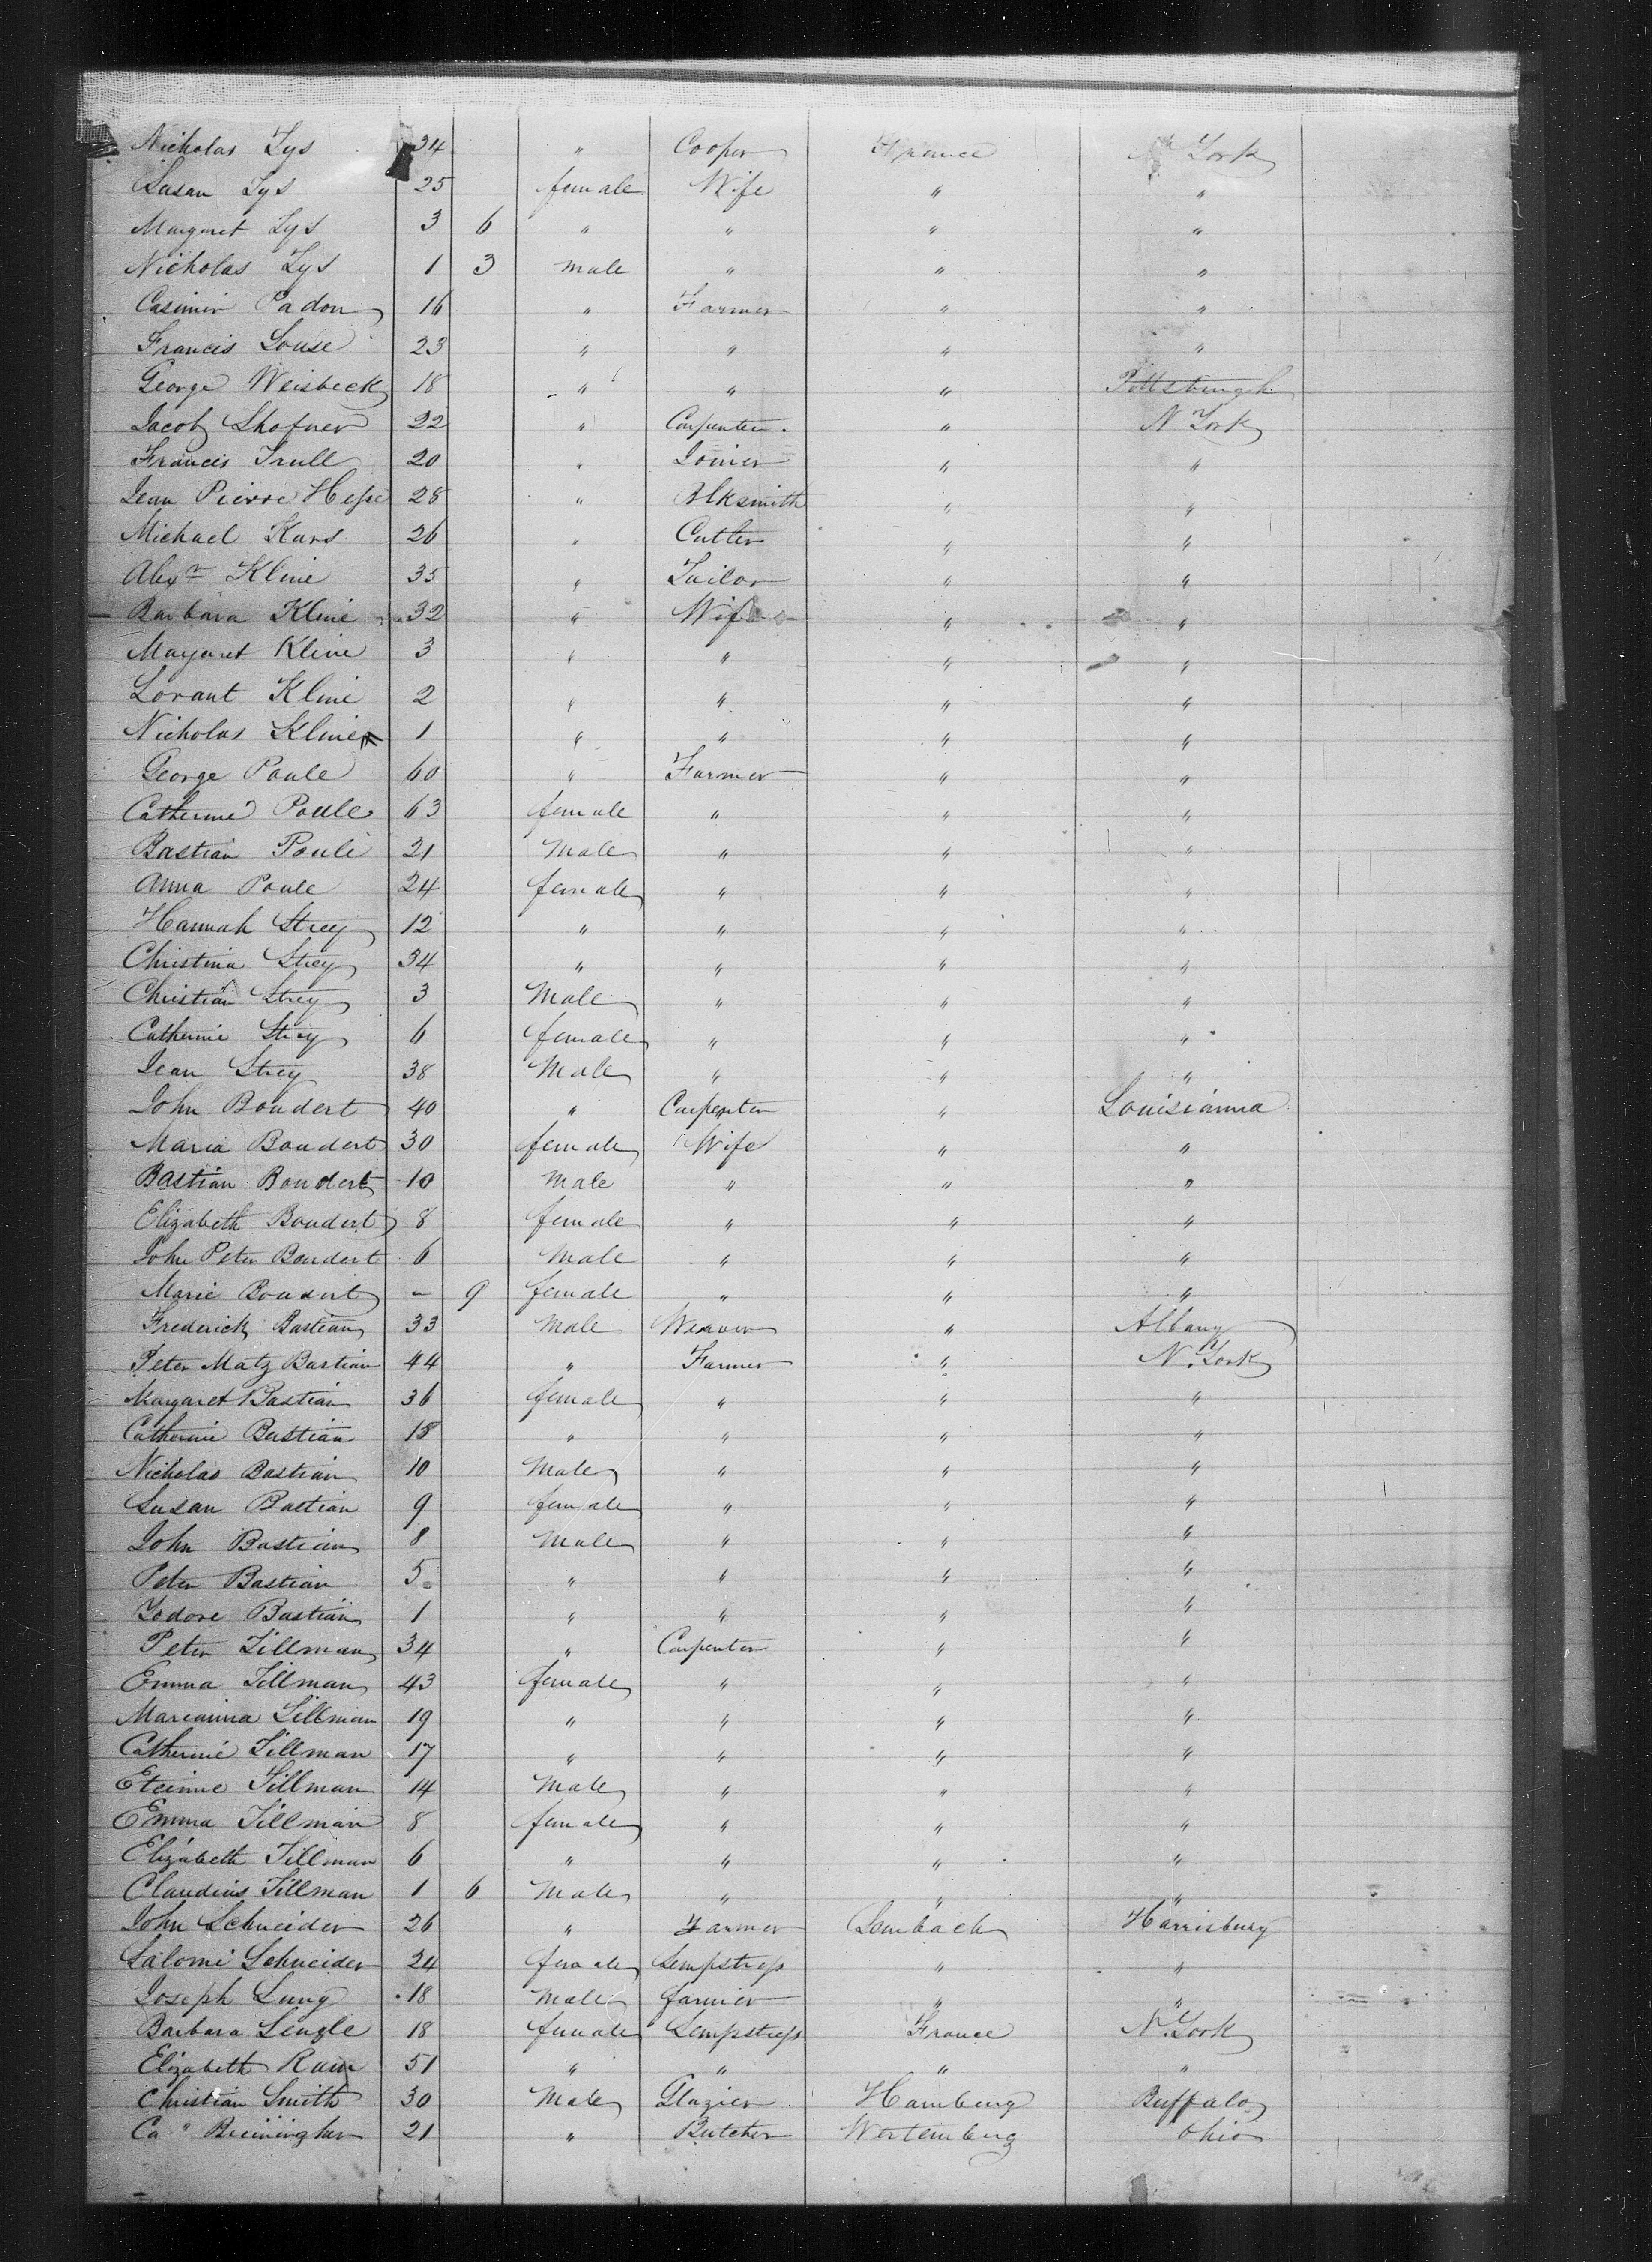 Nicholas Lys 34 " Cooper France N York
Susan Lys 25 female Wife " "
Margaret Lys 3 6 " " " "
Nicholas Lys 1 3 male " " "
Casimir Padon 16 " Farmer " "
Francis Louse 23 " " " "
George Weisbeck 18 " " " Pottsburgh
Jacob Shofner 22 " Carpenter " N York
Francis Trull 20 " Joiner " "
Jean Pierre Hesse 28 " Blksmith " "
Michael Kurs 26 " Cutler " "
Alexr Kline 35 " Tailor " "
Barbara Kline 32 " Wife " "
Margaret Kline 3 " " " "
Lorant Kline 2 " " " "
Nicholas Kline 1 " " " "
George Poule 60 " Farmer " "
Catherine Poule 63 female " " "
Bastian Poule 21 Male " " "
Anna Poule 24 female " " "
Hannah Strey 12 " " " "
Christina Strey 34 " " " "
Christian Strey 3 Male " " "
Catherine Strey 6 female " " "
Jean Strey 38 Male " " "
John Boudert 40 " Carpenter " Louisianna
Maria Boudert 30 female Wife " "
Bastian Boudert 10 Male " " "
Elizabeth Boudert 8 female " " "
John Peter Boudert 6 Male " " "
Marie Boudert - 9 female " " "
Frederick Bastian 33 Male Weaver " Albany
Peter Matz Bastian 44 " Farmer " N. York
Margaret Bastian 36 female " " "
Catherine Bastian 13 " " " "
Nicholas Bastian 10 Male " " "
Susan Bastian 9 female " " "
John Bastian 8 Male " " "
Peter Bastian 5 " " " "
Isodore Bastian 1 " " " "
Peter Tillman 34 " Carpenter " "
Emma Tillman 43 female " " "
Marianna Tillman 19 " " " "
Catherine Tillman 17 " " " "
Eteinne Tillman 14 Male " " "
Emma Tillman 8 female " " "
Elizabeth Tillman 6 " " " "
Claudius Tillman 1 6 Male " " "
John Schneider 26 " Farmer Lembach Harrisburg
Salome Schneider 24 female Sempstress " "
Joseph Lung 18 Male farmer " "
Barbara Lengle 18 female Sempstress France N. York
Elizabeth Ram 51 " " " "
Christian Smith 30 Male Glazier Hamburg Buffalo
Ca " 21 " Butcher Wertemberg Ohio